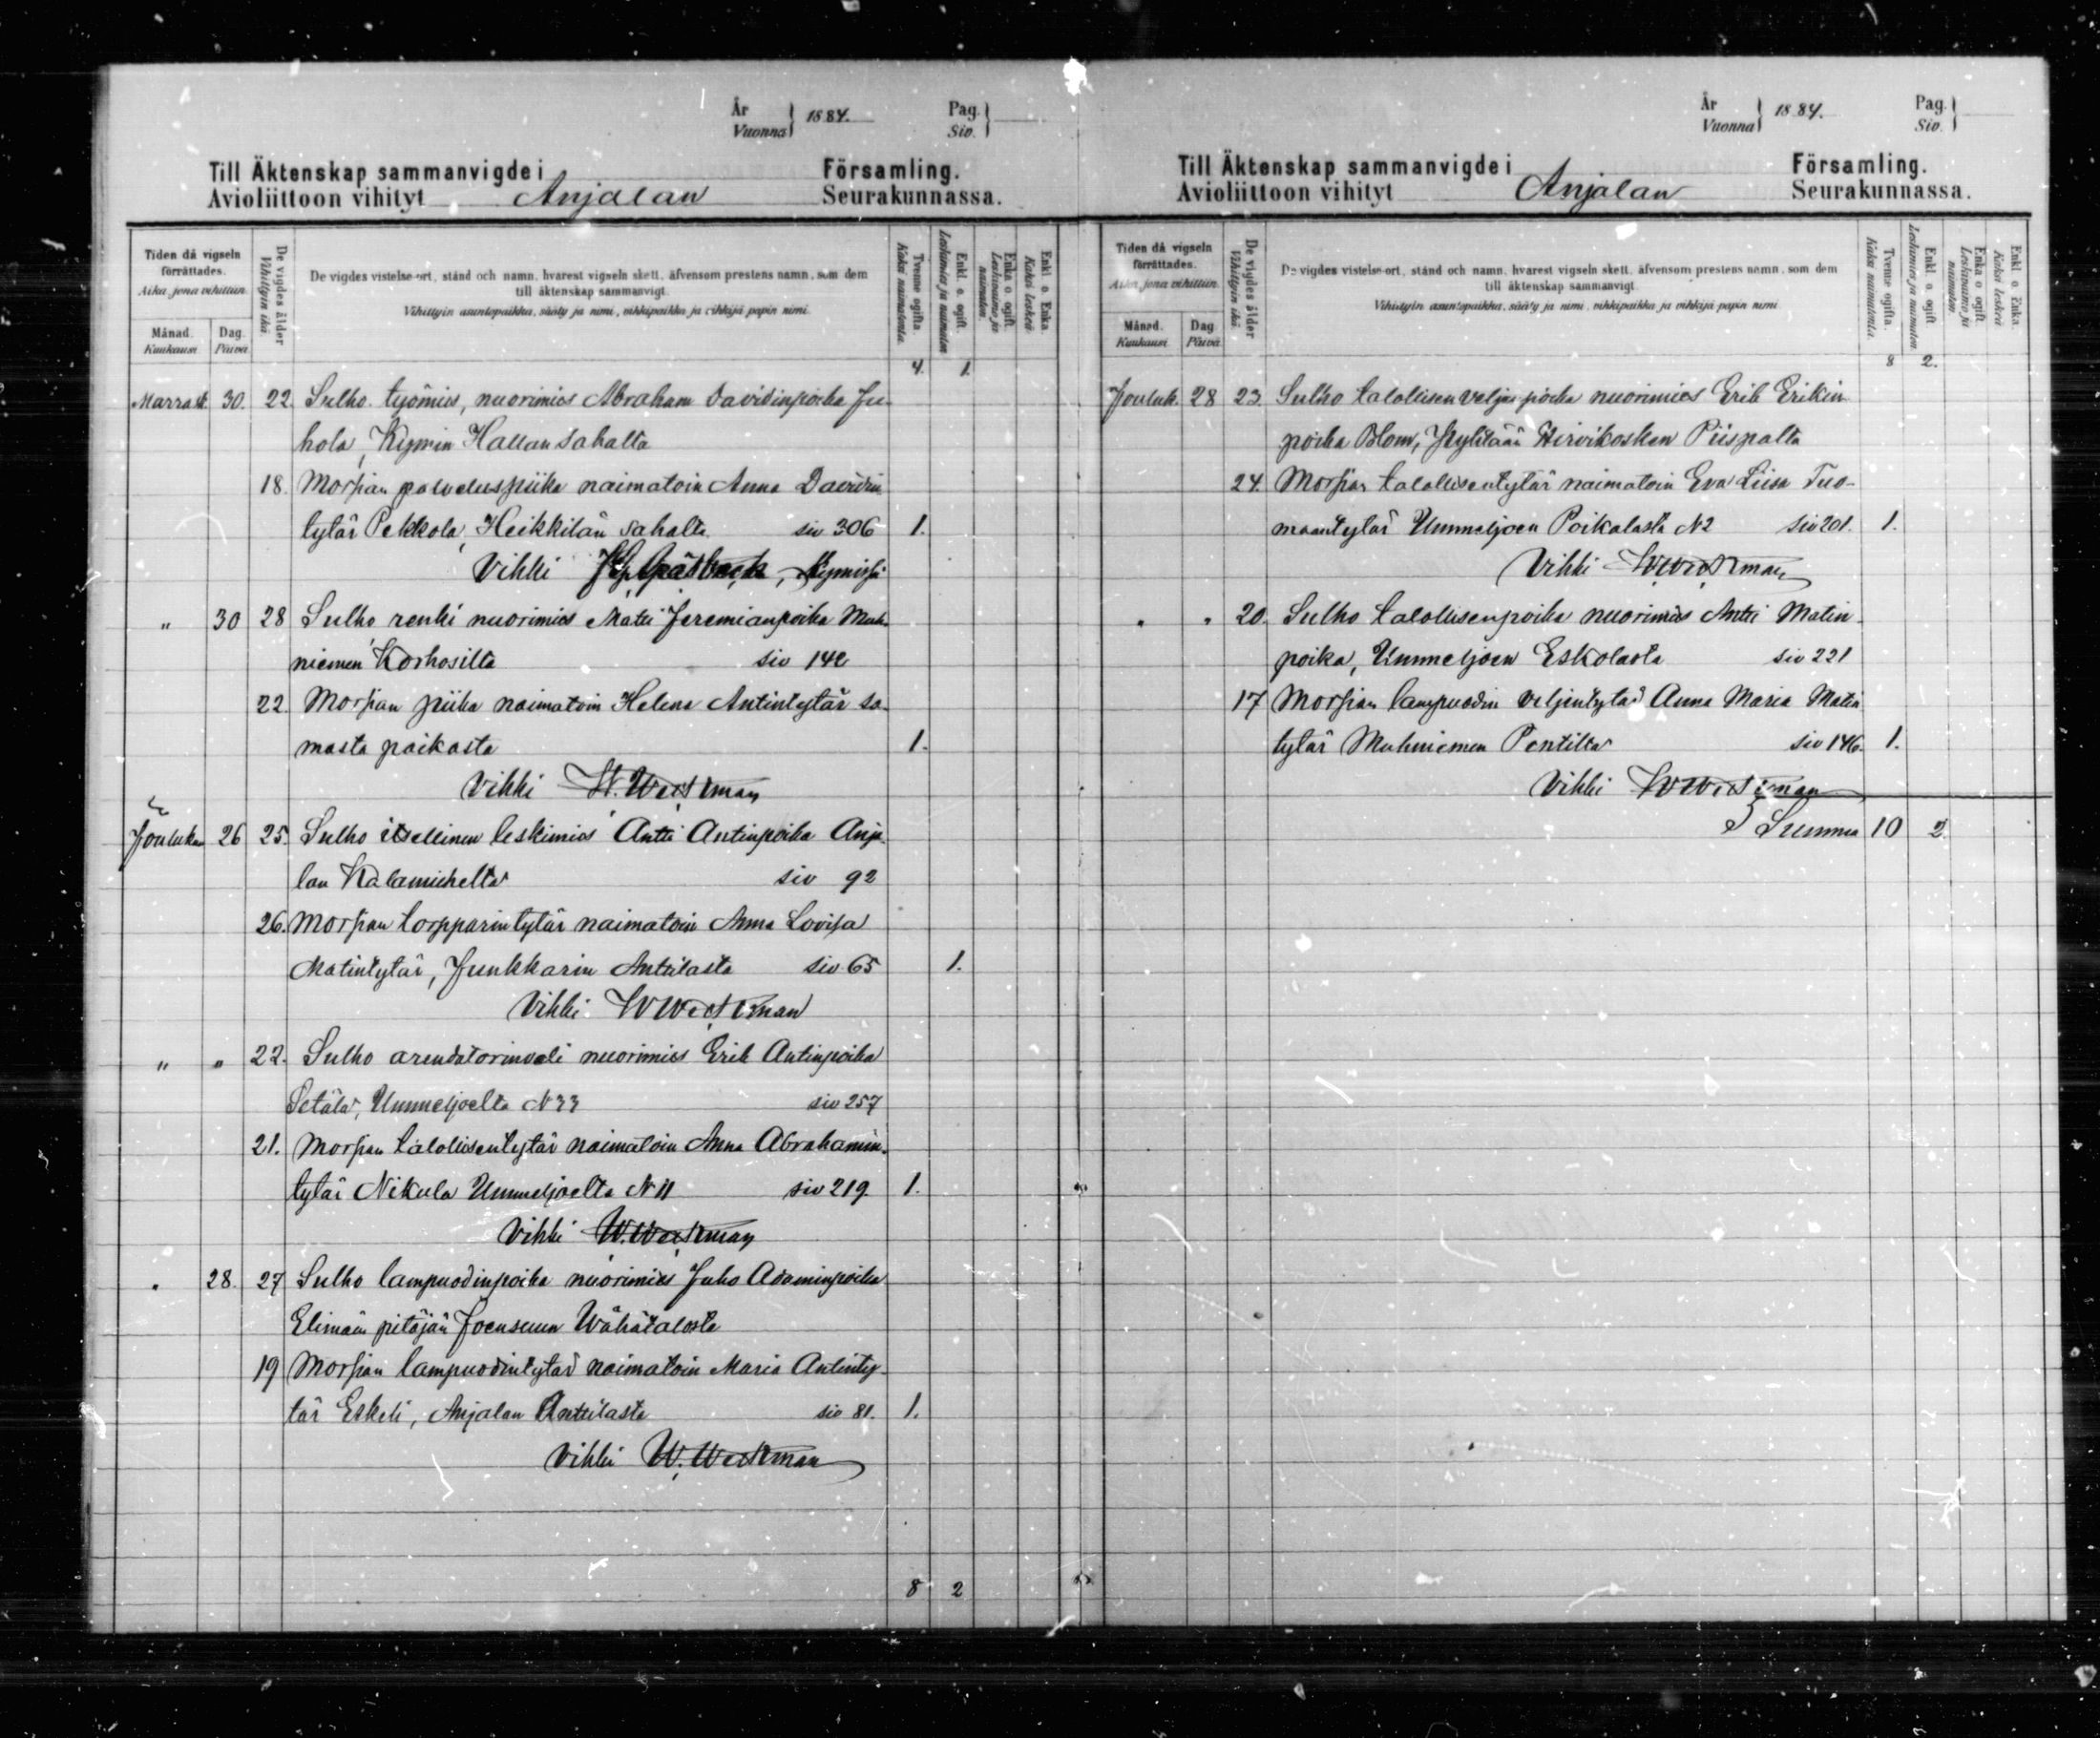 År
Vuonna } 1884.
Pag.
Siv. }
Till Äktenskap sammanvigde i Församling.
Avioliittoon vihityt Anjalan Seurakunnassa.
Tiden då vigseln förrättades.
Aika, jona vihittiin.
Månad. Kuukausi
Dag. Päivä
De vigdes ålder
Vihittyin ikä.
De vigdes vistelse-ort, stånd och namn, hvarest vigseln skett, äfvensom prestens namn, som dem
till äktenskap sammanvigt.
Vihittyin asuntopaikka, sääty ja nimi, vihkipaikka ja vihkijä papin nimi.
Tvenne ogifta.
Kaksi naimatonta.
Enkl. o. ogift.
Leskimies ja naimaton
Enka o. ogift.
Leskivaimo ja naimaton.
Enkl. o. Enka.
Kaksi leskeä
4. 1.
Marrask. 30. 22. Sulho työmies, nuorimies Abraham Davidinpoika Ju-
hola, Kymin Hallan sahalta
18. Morsian palveluspiika naimatoin Anna Davidin
tytär Pekkola, Heikkilän sahalta siv 306 1.
Vihki
" 30 28 Sulho renki nuorimies Matti Jeremianpoika Muh-
niemen Korhosilta siv 142
22. Morsian piika naimatoin Helena Antintytär sa-
masta paikasta 1.
Vihki W. Westerman
Jouluku 26 25. Sulho itsellinen leskimies Antti Antinpoika Anja-
lan Kalamiehelta siv 92
26. Morsian torpparintytär naimatoin Anna Lovisa
Matintytär, Junkkarin Anttilasta siv. 65 1.
Vihki W Westerman
" " 22. Sulho arendatorinveli nuorimies Erik Antinpoika
Setälä, Ummeljoelta N 33 siv 257
21. Morsian talollisentytär naimatoin Anna Abrahamin-
tytär Nikula Ummeljoelta N 11 siv 219. 1.
Vihki W. Westerman
" 28. 27 Sulho lampuodinpoika nuorimies Juho Adaminpoika
Elimäen pitäjän Joensuun Wähätalosta
19 Morsian lampuodintytär naimatoin Maria Antinty-
tär Eskeli, Anjalan Anttilasta siv 81. 1.
Vihki W. Westerman
8 2
År
Vuonna } 1884.
Pag.
Siv. }
Till Äktenskap sammanvigde i Församling.
Avioliittoon vihityt Anjalan Seurakunnassa.
Tiden då vigseln förrättades.
Aika, jona vihittiin.
Månad. Kuukausi
Dag. Päivä
De vigdes ålder
Vihittyin ikä.
De vigdes vistelse-ort, stånd och namn, hvarest vigseln skett, äfvensom prestens namn, som dem
till äktenskap sammanvigt.
Vihittyin asuntopaikka, sääty ja nimi, vihkipaikka ja vihkijä papin nimi.
Tvenne ogifta.
Kaksi naimatonta.
Enkl. o. ogift.
Leskimies ja naimaton.
Enka o. ogift.
Leskivaimo ja naimaton.
Enkl. o. Enka.
Kaksi leskeä
8 2.
Jouluk. 28 23. Sulho talollisen veljenpoika nuorimies Erik Erikin
poika Blom, Hirvikosken Piispalta
24. Morsian talollisentytär naimatoin Eva Liisa Tuo-
maantytär Ummeljoen Poikalasta N2 siv 201. 1.
Vihki W Westerman
" " 20. Sulho talollisenpoika nuorimies Antti Matin-
poika, Ummeljoen Eskolasta siv 221
17 Morsian lampuodin veljentytär Anna Maria Matin
tytär Muhniemen Pentiltä siv 146. 1.
Vihki W Westerman
Summa 10 2